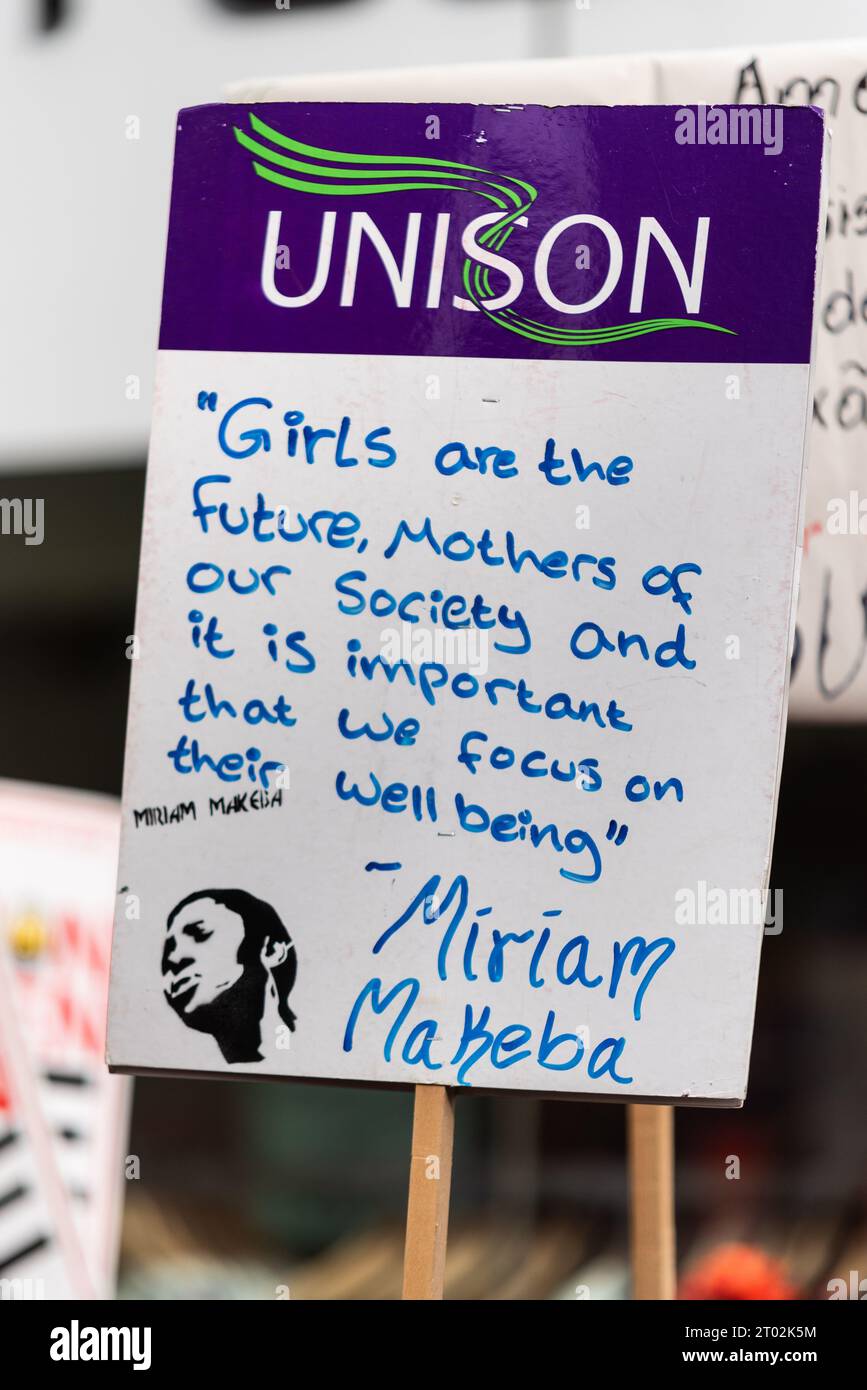 Ame
UNISON
"Girls are the
future, Mothers of
our Society and
it is important
that we focus on
their well being"
MIRIAM MAKEBA
- Miriam
Makeba
alamy
Image ID: 2T02K5M
www.alamy.com